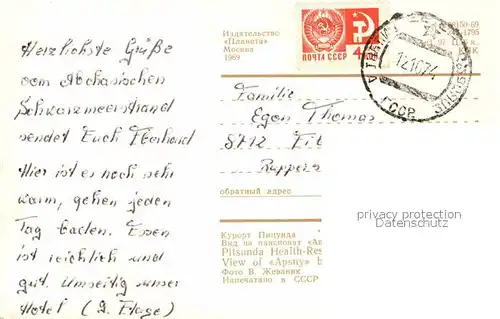 Herzlichste Grüße
vom Abchasischen
Schwarzmeerstrand
sendet Euch Eberhard
Hier ist es noch sehr
warm, gehen jeden
Tag baden. Essen
ist reichlich und
gut. Umseitig unser
Hotel (2. Etage)
Издательство
«Планета»
Москва
1969
ПОЧТА СССР
4
12.10.74
ГССР
50-69
1795
Familie
Egon Thomas
8712
Ruppers
обратный адрес
privacy protection
Datenschutz
Курорт Пицунда
Вид на пансионат «Ап
Pitsunda Health-Res
View of «Apsny» b
Фото В. Жеваник
Напечатано в СССР